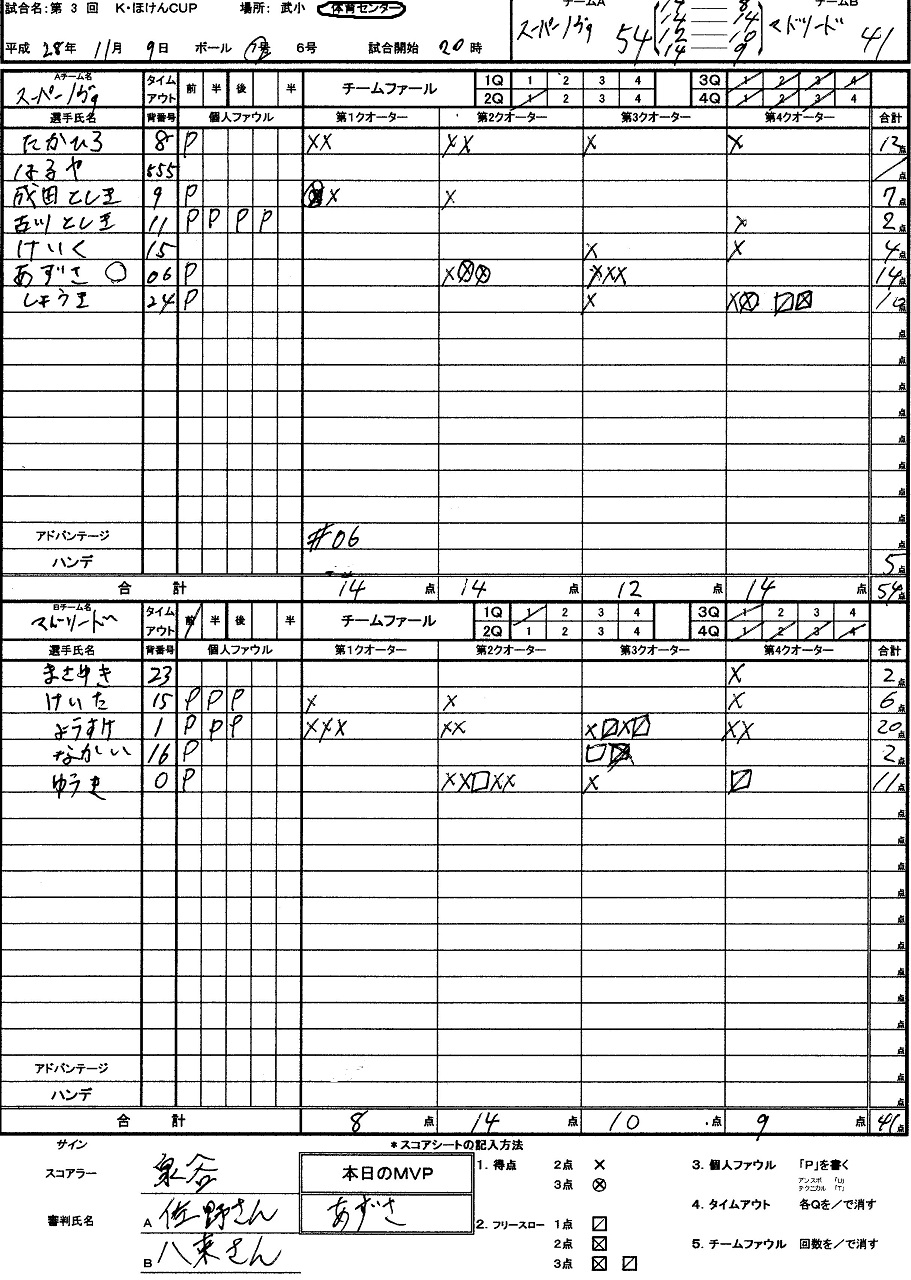 試合名：第 3 回 K・ほけんCUP 場所： 武小 体育センター
平成 28年 11月 9日 ボール 7号 6号 試合開始 20時
チームA チームB
スーパーノヴァ 54 マドリード 41
14 — 8
14 — 14
12 — 10
14 — 9
Aチーム名 スーパーノヴァ タイムアウト 前 半 後 半 チームファール 1Q 1 2 3 4 3Q 1 2 3 4
2Q 1 2 3 4 4Q 1 2 3 4
選手氏名 背番号 個人ファウル 第1クオーター 第2クオーター 第3クオーター 第4クオーター 合計
たかひろ 8 P XX XX X X 12点
はるや 555 点
成田としき 9 P X X 7点
古川としき 11 P P P P X 2点
けいく 15 X X 4点
あずさ ○ 06 P X⊗⊗ XXX 14点
しょうき 24 P X X⊗ ☐☒ 10点
アドバンテージ #06
ハンデ 5点
合 計 14 点 14 点 12 点 14 点 54点
Bチーム名 マドリード タイムアウト 前 半 後 半 チームファール 1Q 1 2 3 4 3Q 1 2 3 4
2Q 1 2 3 4 4Q 1 2 3 4
選手氏名 背番号 個人ファウル 第1クオーター 第2クオーター 第3クオーター 第4クオーター 合計
まさゆき 23 X 2点
けいた 15 P P P X X X 6点
ようすけ 1 P P P XXX XX X〼X〼 XX 20点
なかい 16 P 2点
ゆうき 0 P XX☐XX X 〼 11点
アドバンテージ
ハンデ
合 計 8 点 14 点 10 点 9 点 41点
サイン
スコアラー 泉谷
審判氏名 A 佐野さん
B 八束さん
本日のMVP
あずさ
＊スコアシートの記入方法
1. 得点 2点 ×
3点 ⊗
2. フリースロー 1点 〼
2点 ☒
3点 ☒ 〼
3. 個人ファウル 「P」を書く
アンスポ 「U」
テクニカル 「T」
4. タイムアウト 各Qを／で消す
5. チームファウル 回数を／で消す